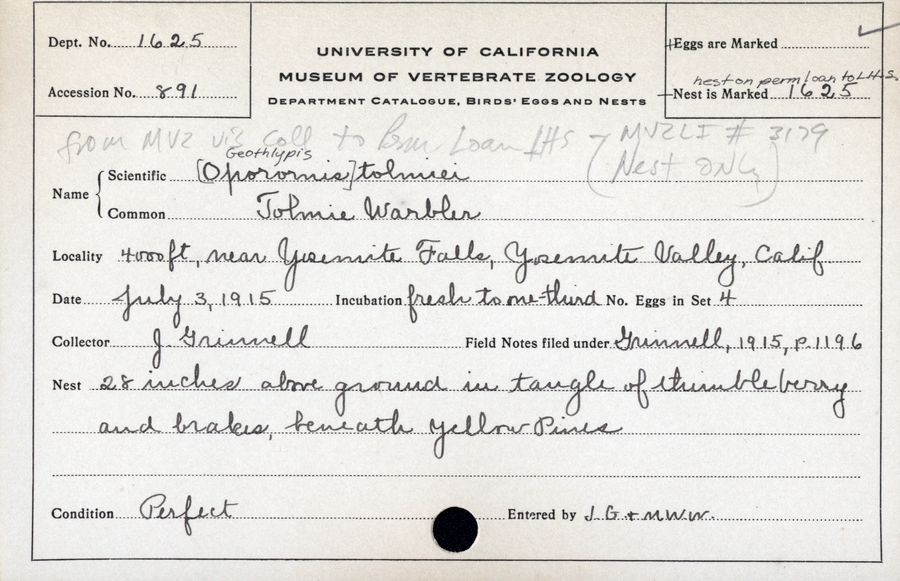 Dept. No. 1625
Accession No. 891
UNIVERSITY OF CALIFORNIA
MUSEUM OF VERTEBRATE ZOOLOGY
DEPARTMENT CATALOGUE, BIRDS' EGGS AND NESTS
Eggs are Marked
nest on perm loan to LHS.
Nest is Marked 1625
from MVZ viz coll to Perm Loan LHS - MVZLI # 3179
(Nest ONLY)
Geothlypis
Name Scientific [Oporornis] tolmiei
Common Tolmie Warbler
Locality 4000 ft, near Yosemite Falls, Yosemite Valley, Calif
Date July 3, 1915 Incubation fresh to one-third No. Eggs in Set 4
Collector J. Grinnell Field Notes filed under Grinnell, 1915, p. 1196
Nest 28 inches above ground in tangle of thimbleberry
and brakes, beneath Yellow Pines
Condition Perfect Entered by J.G. + M.W.W.